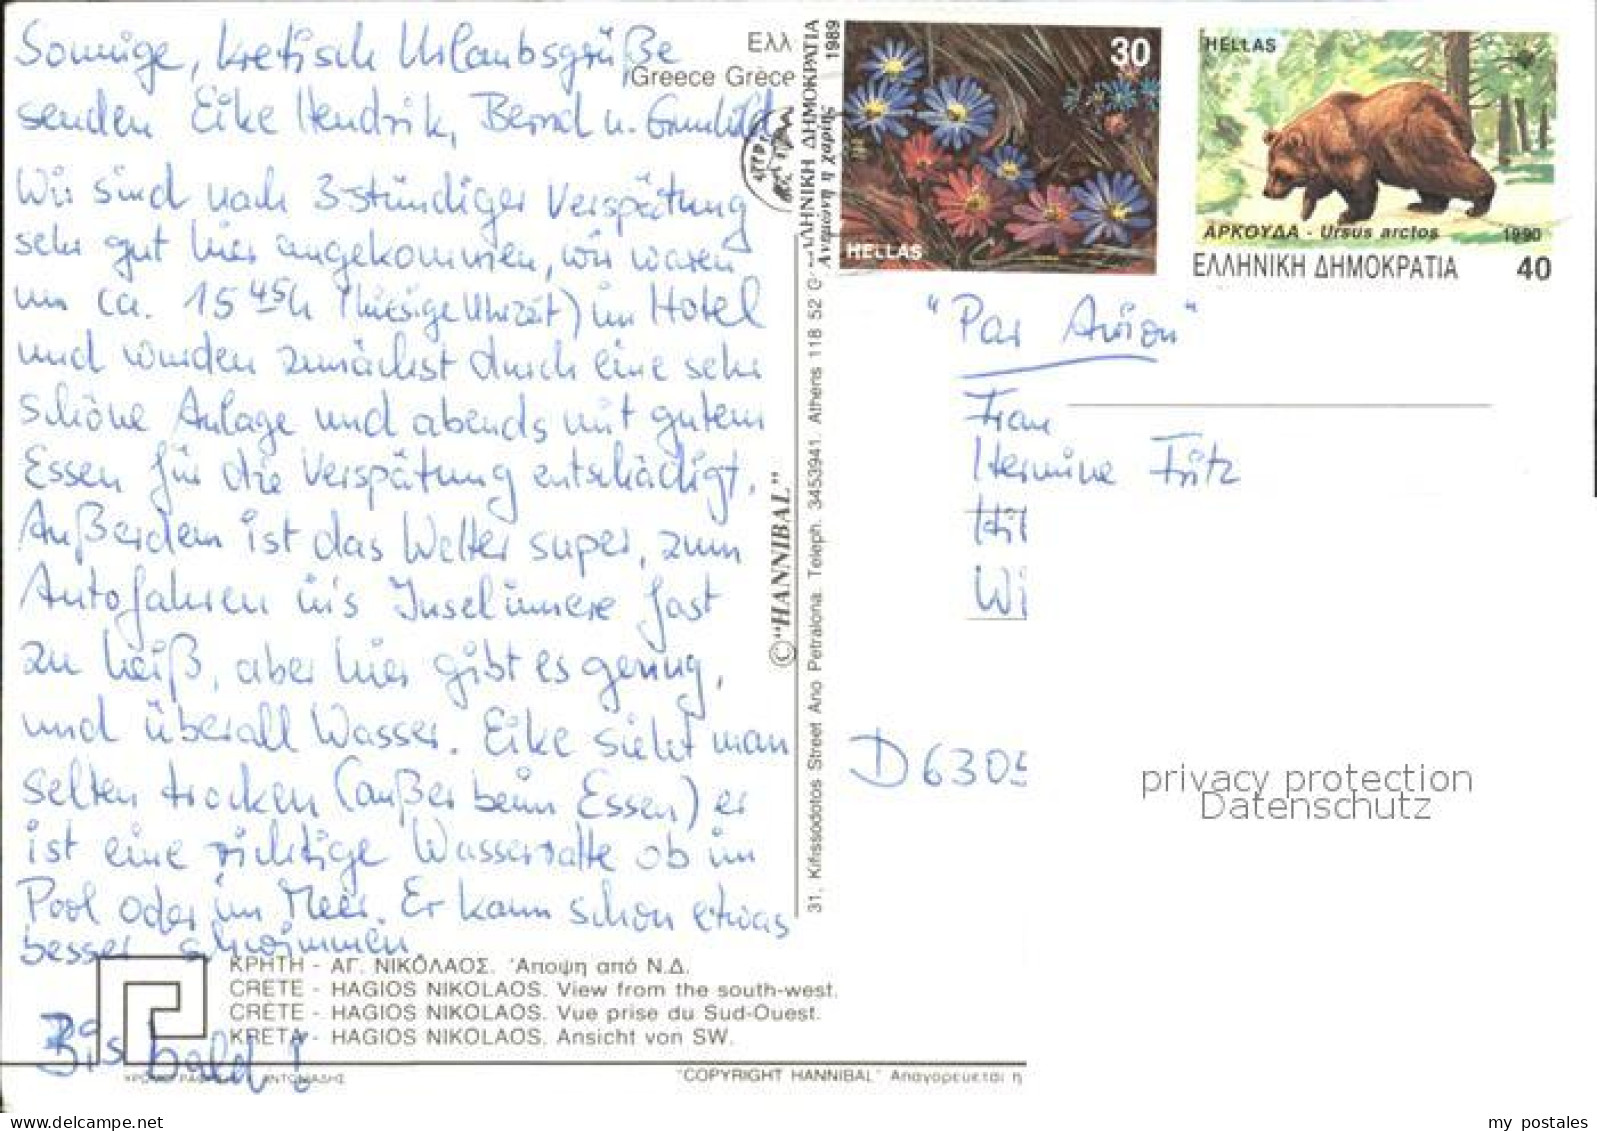 Sonnige, kretische Urlaubsgrüße
senden Eike Hendrik, Bernd u. Gunhild
Wir sind nach 3-stündiger Verspätung
sehr gut hier angekommen, wir waren
um ca. 15 45h (hiesige Uhrzeit) im Hotel
und wurden zunächst durch eine sehr
schöne Anlage und abends mit gutem
Essen für die Verspätung entschädigt.
Außerdem ist das Wetter super, zum
Autofahren in's Inselinnere fast
zu heiß, aber hier gibt es genug,
und überall Wasser. Eike sieht man
selten trocken (außer beim Essen) er
ist eine richtige Wasserratte ob im
Pool oder im Meer. Er kann schon etwas
besser schwimmen
Bis bald!
ΚΡΗΤΗ - ΑΓ. ΝΙΚΟΛΑΟΣ. Άποψη από Ν.Δ.
CRETE - HAGIOS NIKOLAOS. View from the south-west.
CRÈTE - HAGIOS NIKOLAOS. Vue prise du Sud-Ouest.
KRETA - HAGIOS NIKOLAOS. Ansicht von SW.
"COPYRIGHT HANNIBAL" Απαγορεύεται η
Ελλ
Greece Grèce
©"HANNIBAL"
31, Kifissodotos Street Ano Petralona. Teleph. 3453941. Athens 118 52 G
ΛΗΝΙΚΗ ΔΗΜΟΚΡΑΤΙΑ
1989
30
HELLAS
HELLAS
ΑΡΚΟΥΔΑ - Ursus arctos 1990
ΕΛΛΗΝΙΚΗ ΔΗΜΟΚΡΑΤΙΑ 40
"Par Avion"
Frau
Hermine Fritz
Hil
Wi
D 6305
privacy protection
Datenschutz
delcampe.net
my_postales